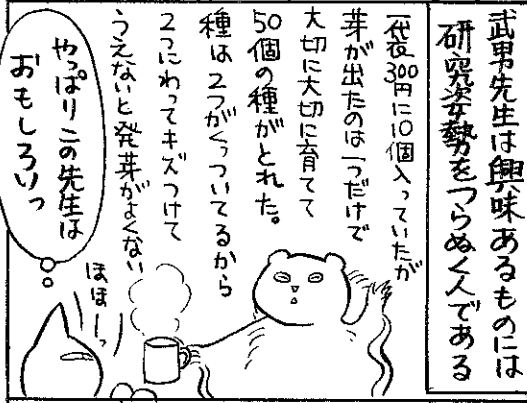 武男先生は興味あるものには
研究姿勢をつらぬく人である
一袋300円に10個入っていたが
芽が出たのは一つだけで
大切に大切に育てて
50個の種がとれた。
種は2つがくっついてるから
2つにわってキズつけて
うえないと発芽がよくない
ほほーっ
やっぱりこの先生は
おもしろいっ